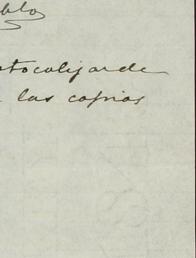 ablo
otocolizarde
las copias